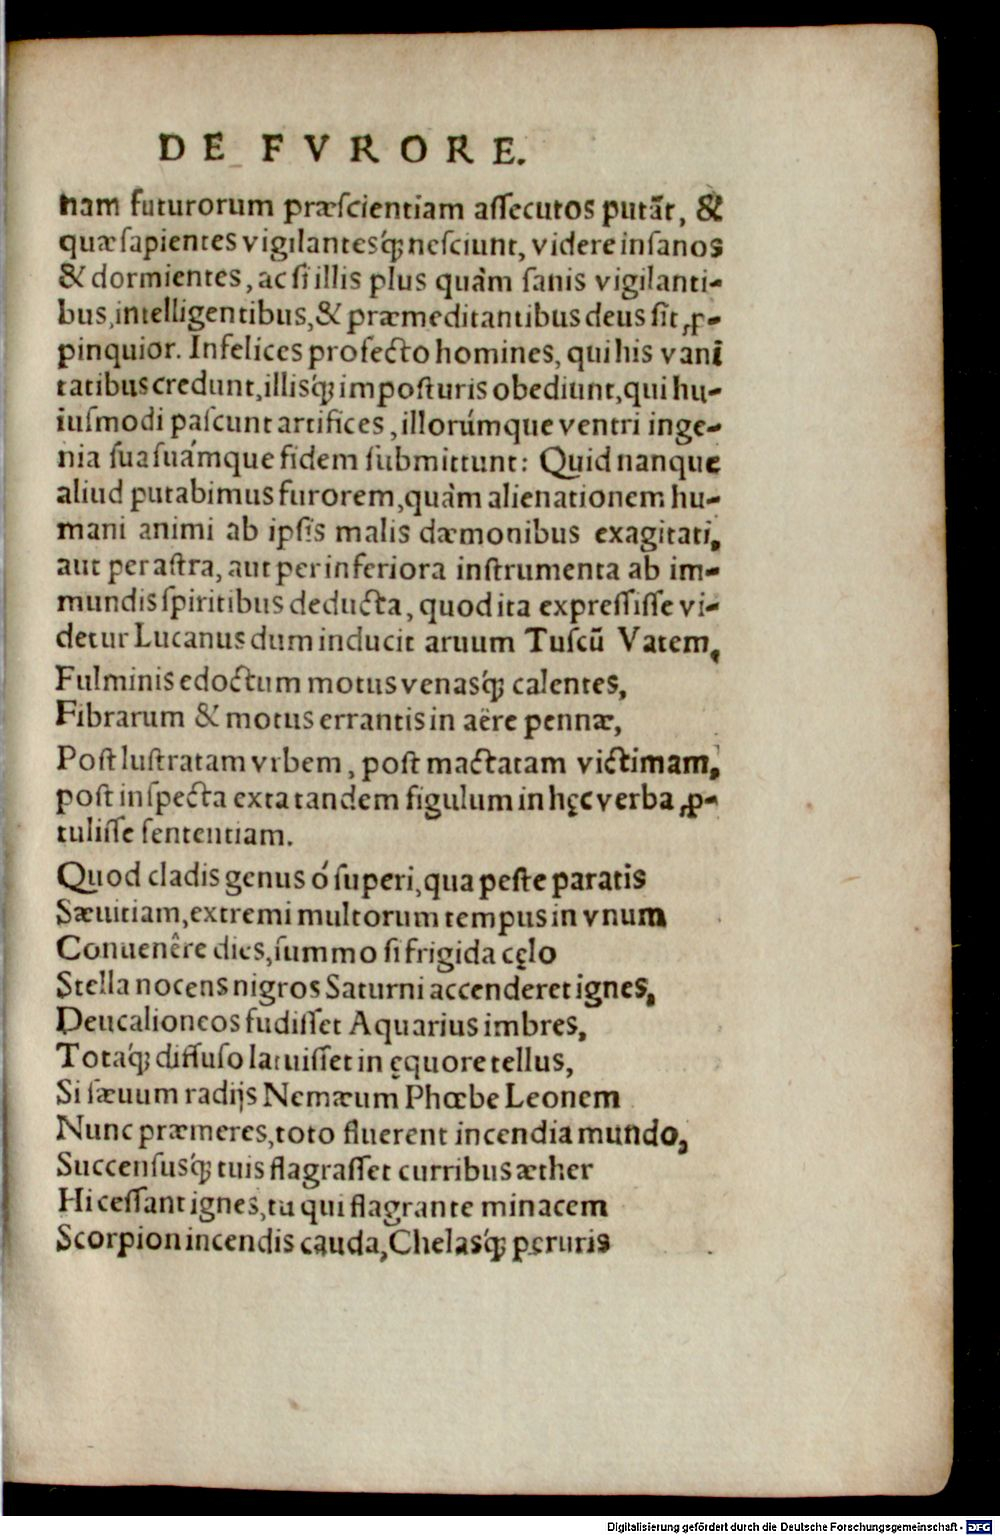 DE FVRORE.
nam futurorum præscientiam assecutos putãt, &
quæ sapientes vigilantesq́ꝫ nesciunt, videre insanos
& dormientes, ac si illis plus quàm sanis vigilanti-
bus, intelligentibus, & præmeditantibus deus sit, ꝓ-
pinquior. Infelices profecto homines, qui his vani
tatibus credunt, illisq́ꝫ imposturis obediunt, qui hu-
iusmodi pascunt artifices, illorúmque ventri inge-
nia sua suámque fidem submittunt: Quid nanque
aliud putabimus furorem, quàm alienationem hu-
mani animi ab ipsis malis dæmonibus exagitati,
aut per astra, aut per inferiora instrumenta ab im-
mundis spiritibus deducta, quod ita expressisse vi-
detur Lucanus dum inducit aruum Tuscũ Vatem,
Fulminis edoctum motus venasq́ꝫ calentes,
Fibrarum & motus errantis in aëre pennæ,
Post lustratam vrbem, post mactatam victimam,
post inspecta exta tandem figulum in hęc verba ꝓ-
tulisse sententiam.
Quod cladis genus ó superi, qua peste paratis
Sæuitiam, extremi multorum tempus in vnum
Conuenêre dies, summo si frigida cęlo
Stella nocens nigros Saturni accenderet ignes,
Deucalioneos fudisset Aquarius imbres,
Totaq́ꝫ diffuso latuisset in ęquore tellus,
Si sæuum radijs Nemæum Phœbe Leonem
Nunc præmeres, toto fluerent incendia mundo,
Succensusq́ꝫ tuis flagrasset curribus æther
Hi cessant ignes, tu qui flagrante minacem
Scorpion incendis cauda, Chelasq́ꝫ peruris
Digitalisierung gefördert durch die Deutsche Forschungsgemeinschaft - DFG